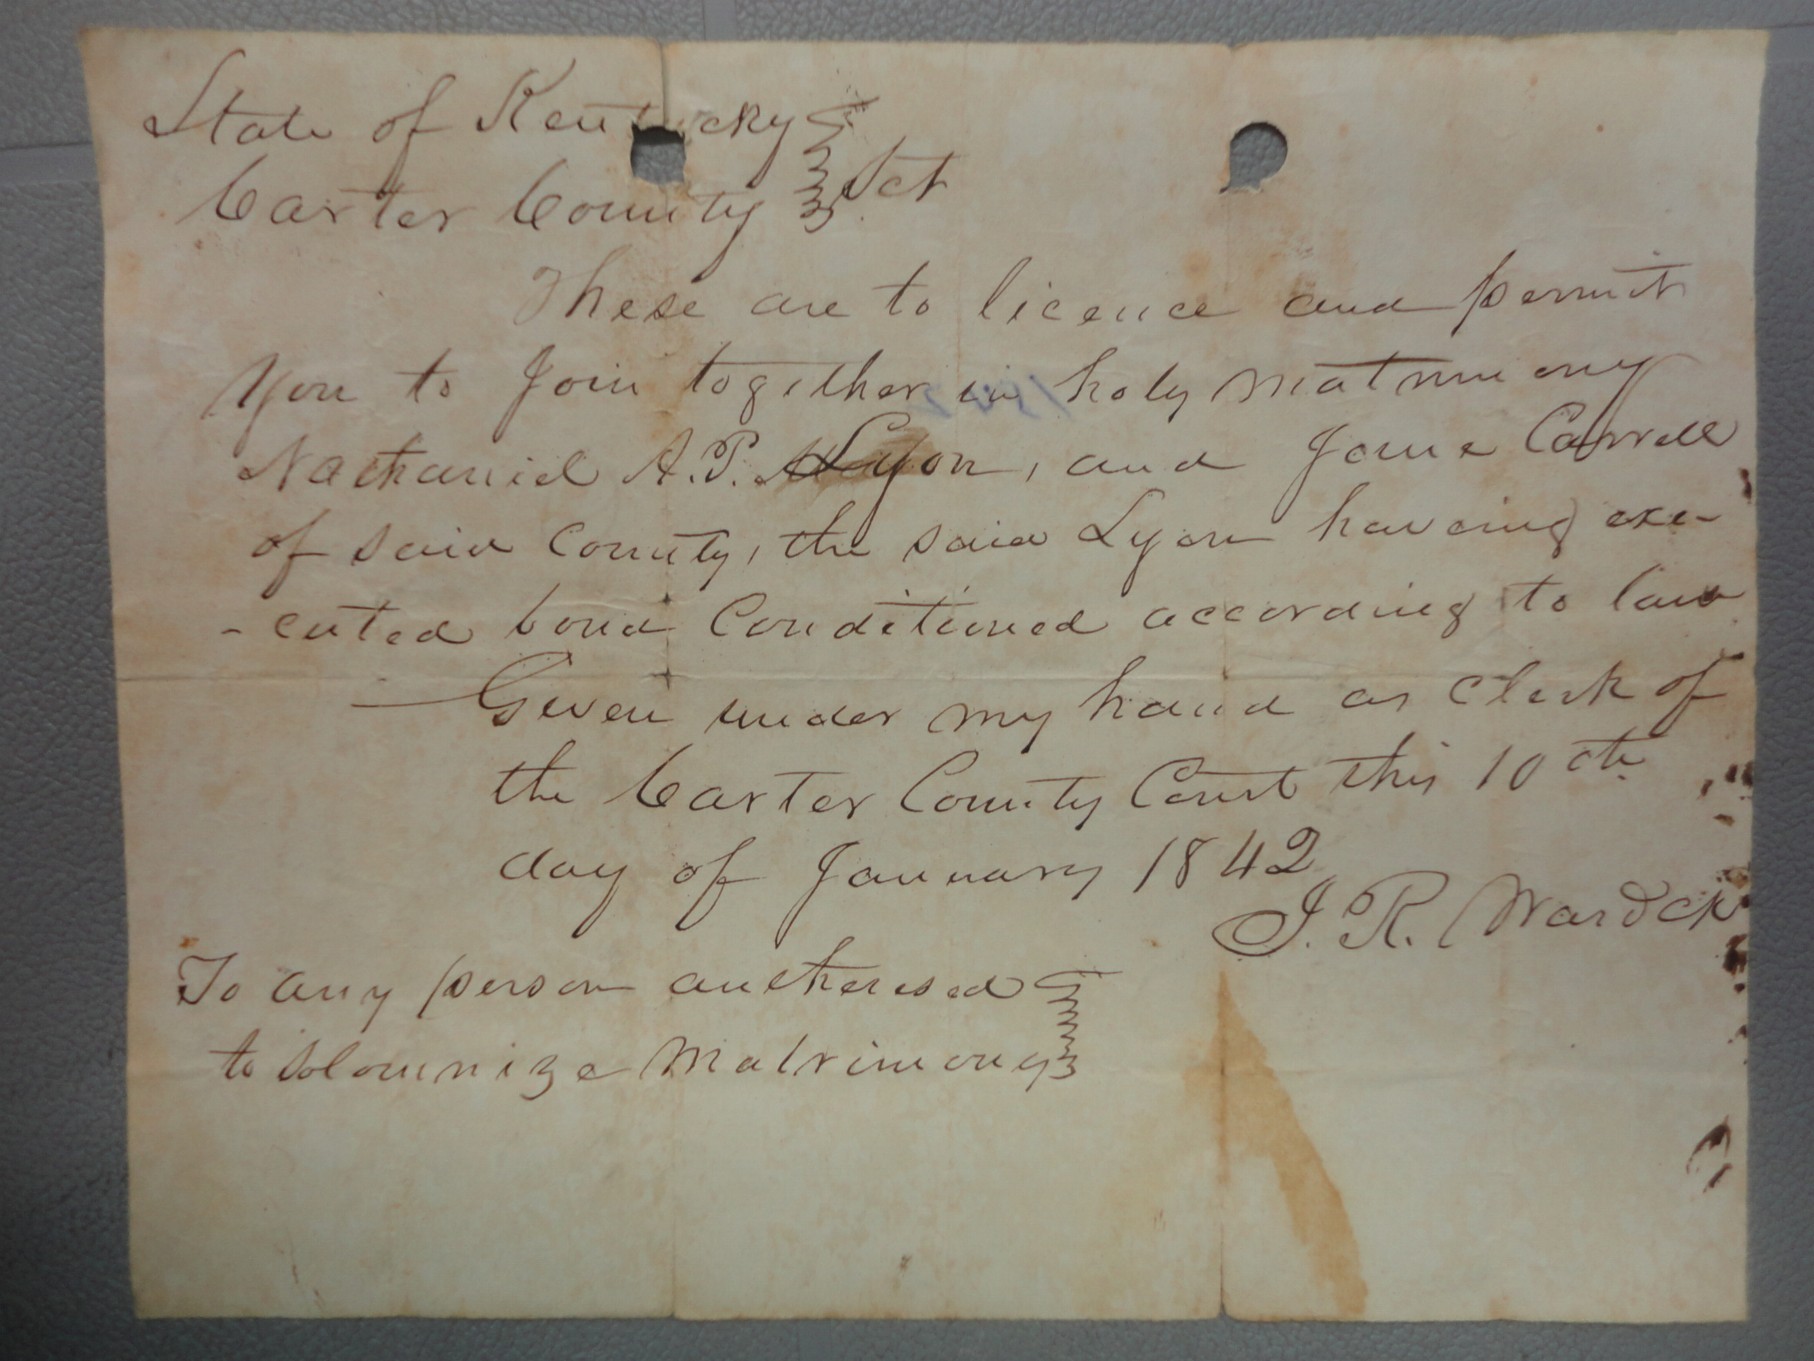 State of Kentucky
Carter County } Sct
These are to licence and permit
you to Join together in holy matrimony
Nathaniel A. P. Lyon, and Jane Carrell
of said County, the said Lyon having exe-
-cuted bond Conditioned according to law
Given under my hand as Clerk of
the Carter County Court this 10th
day of January 1842
J. R. Ward Ck
To any person autherised
to Solomnize Matrimony }